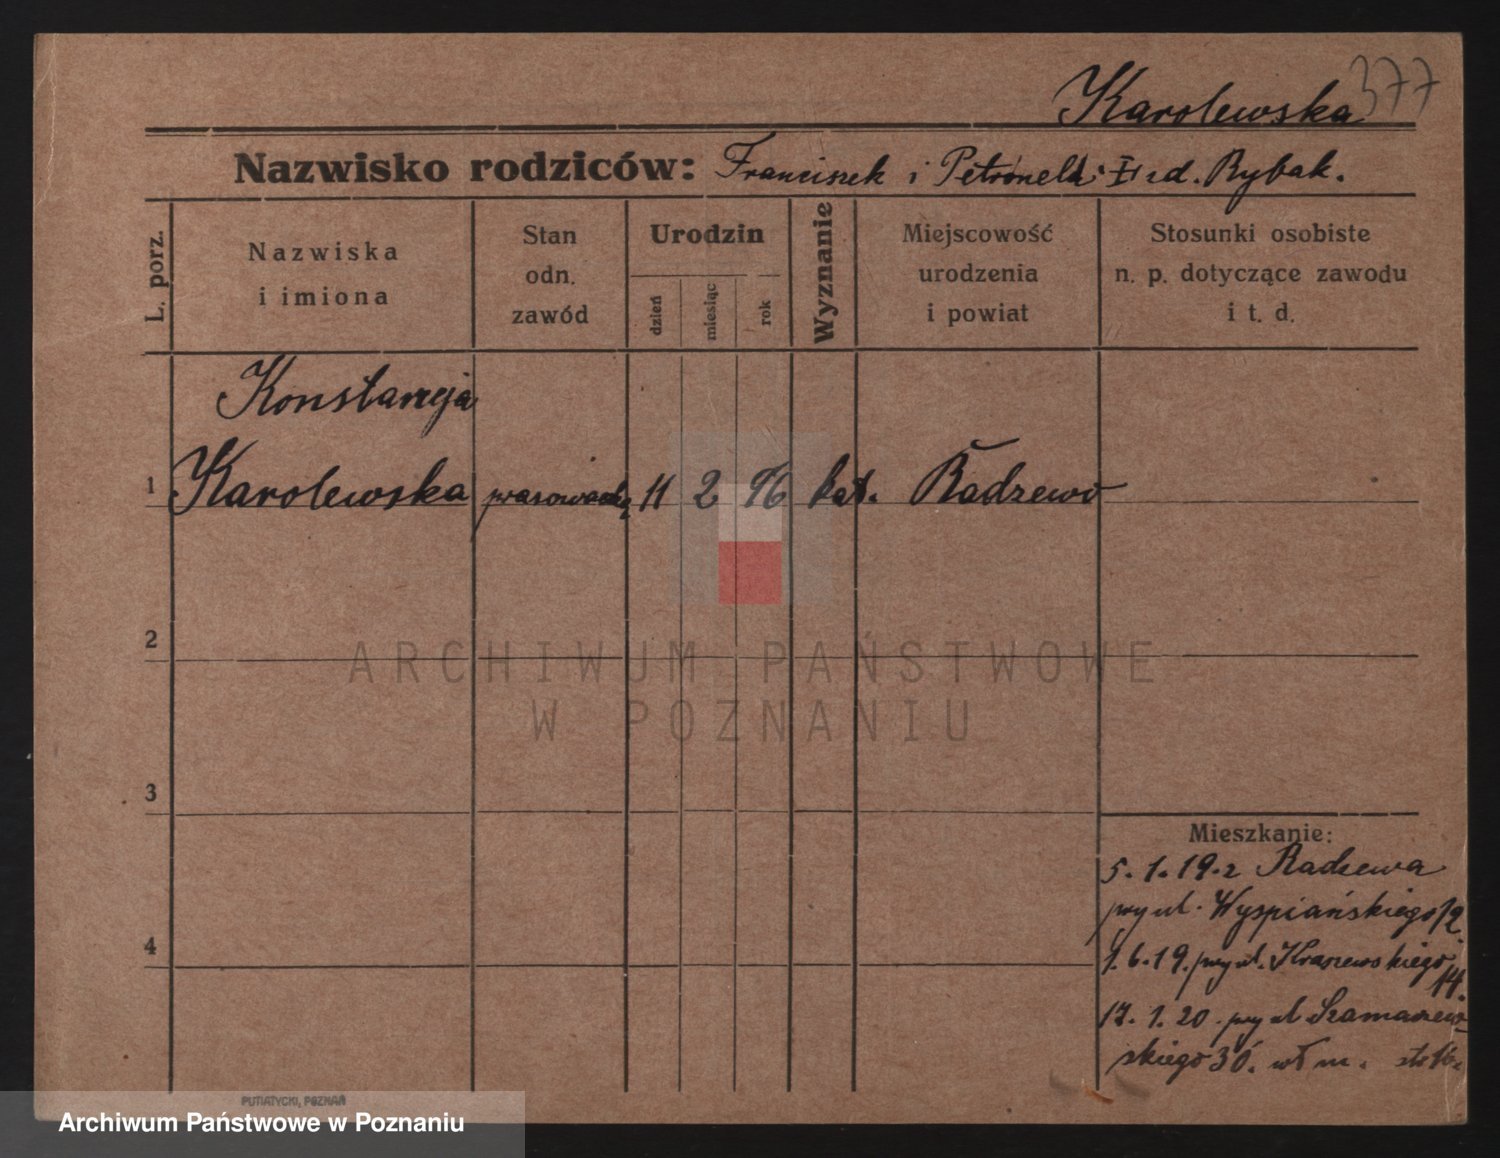 377
Karolewska
Nazwisko rodziców: Franciszek i Petronela zd. Rybak.
L. porz.
Nazwiska
i imiona
Stan
odn.
zawód
Urodzin
dzień
miesiąc
rok
Wyznanie
Miejscowość
urodzenia
i powiat
Stosunki osobiste
n. p. dotyczące zawodu
i t. d.
Konstancja
1 Karolewska prasowaczka 11 2 96 kat. Radzewo
2
ARCHIWUM PAŃSTWOWE
W POZNANIU
3
Mieszkanie:
5. 1. 19. z Radzewa
przy ul. Wyspiańskiego 12.
4
1. 6. 19. przy ul. Kraszewskiego
14.
17. 1. 20. przy ul Szamarzew-
skiego 30.
PUTIATYCKI, POZNAŃ
Archiwum Państwowe w Poznaniu